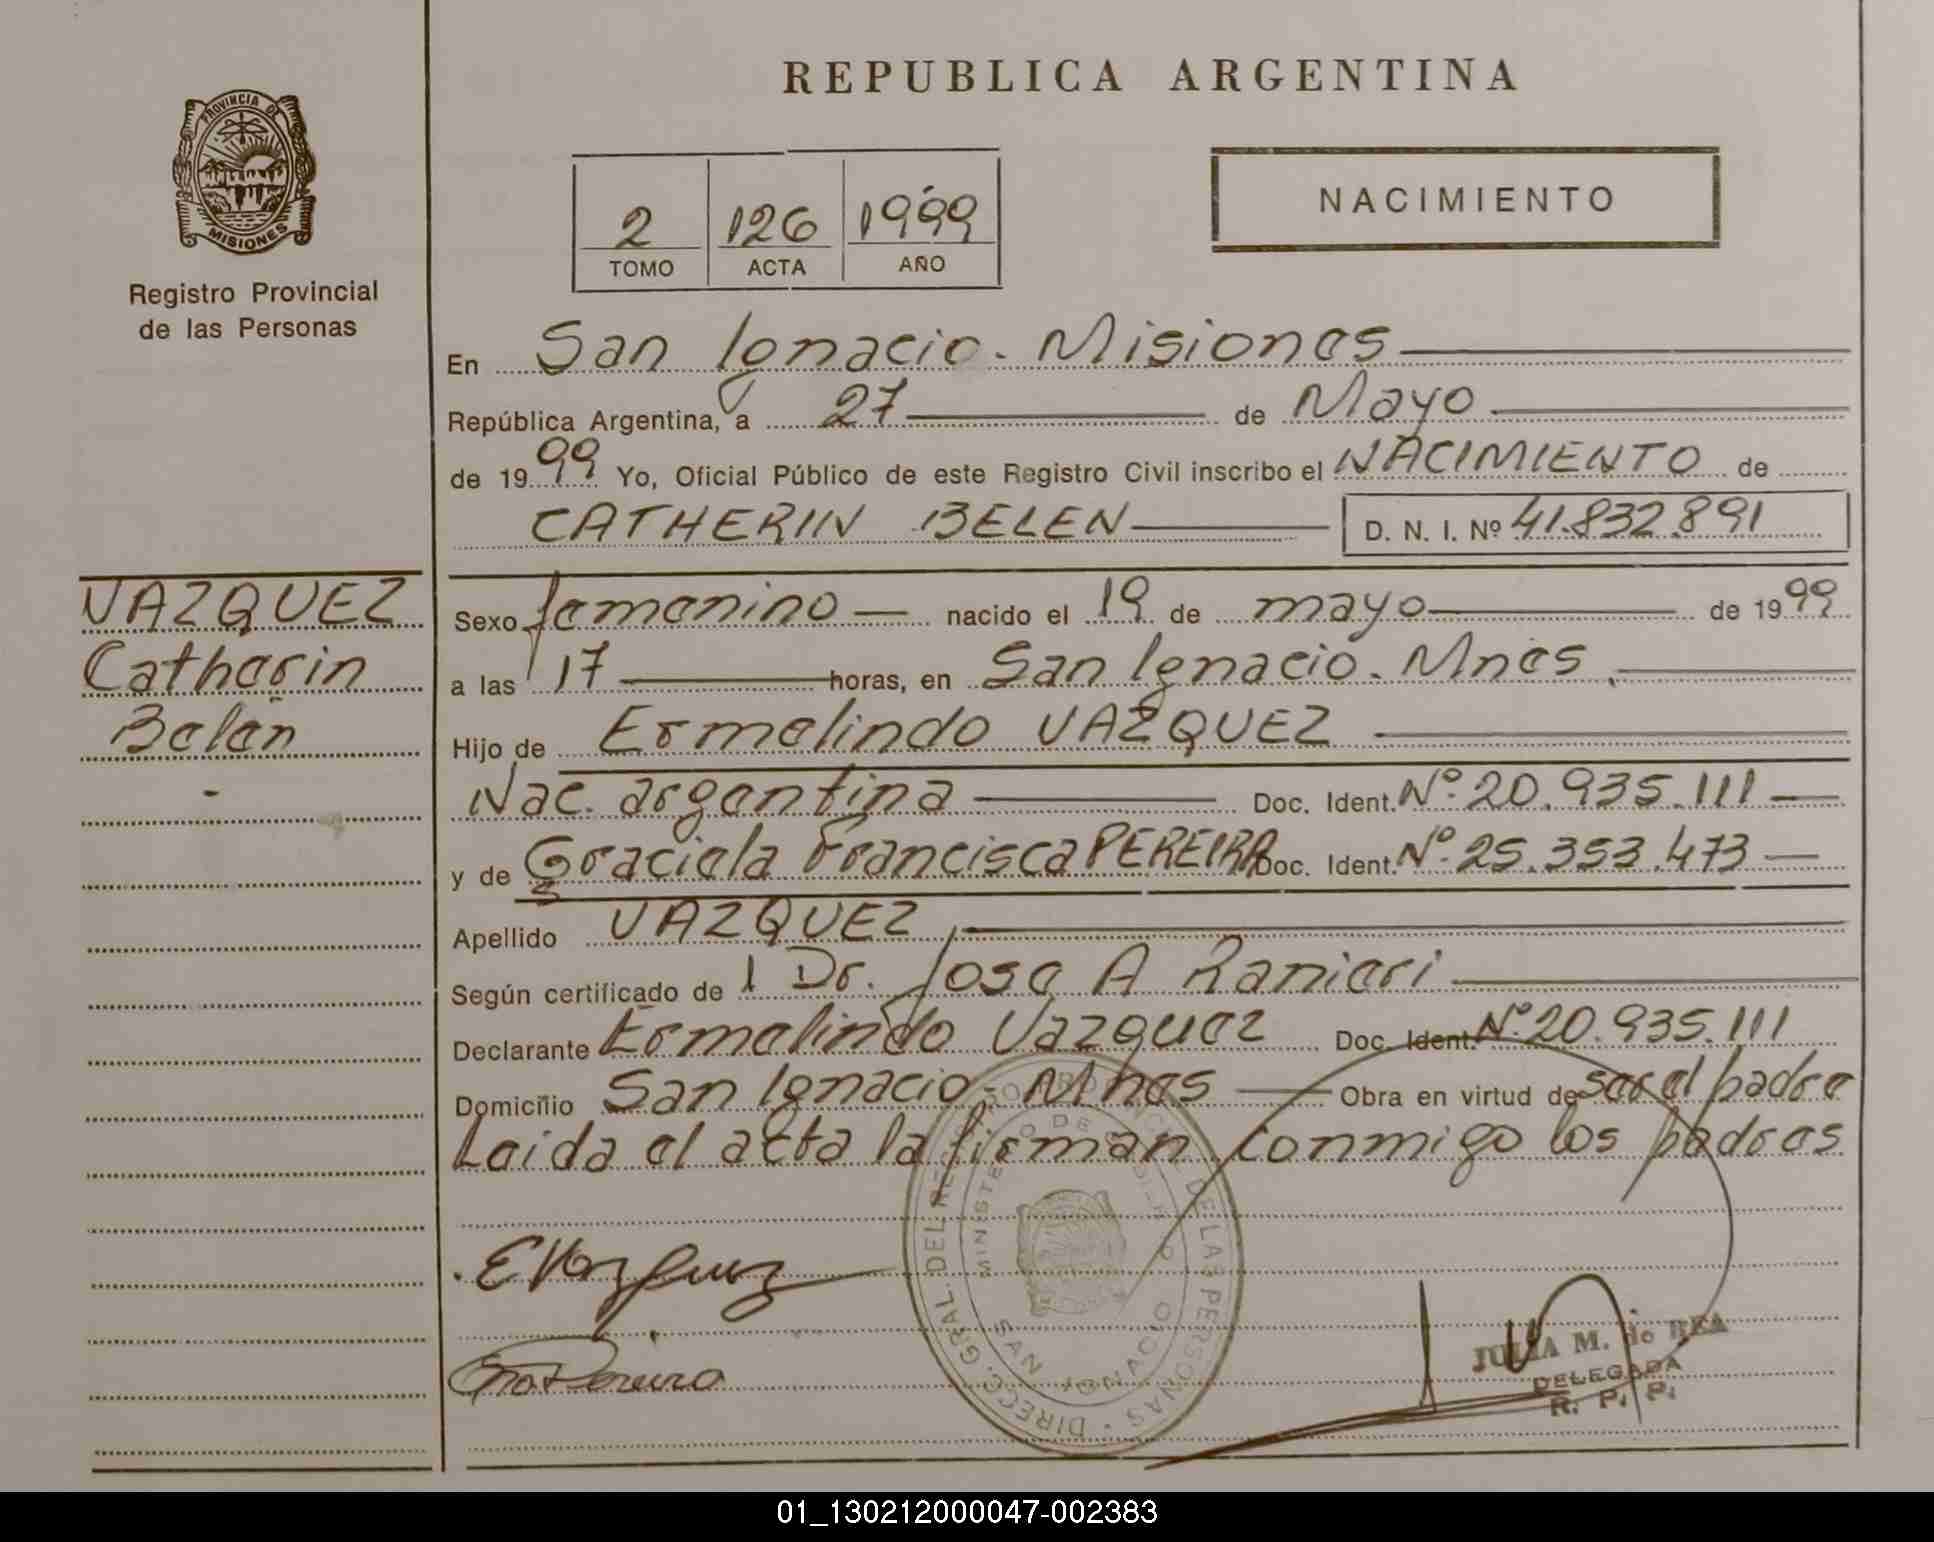 REPUBLICA ARGENTINA
PROVINCIA DE
MISIONES
Registro Provincial
de las Personas
2 126 1999
TOMO ACTA AÑO
NACIMIENTO
En San Ignacio. Misiones
República Argentina, a 27 de Mayo
de 1999 Yo, Oficial Público de este Registro Civil inscribo el NACIMIENTO de
CATHERIN BELEN D. N. I. Nº 41.832.891
VAZQUEZ
Catherin
Belén
Sexo femenino nacido el 19 de mayo de 1999
a las 17 horas, en San Ignacio. Mnes.
Hijo de Ermelindo VAZQUEZ
Nac. argentina Doc. Ident. Nº. 20.935.111
y de Graciela Francisca PEREIRA Doc. Ident. Nº. 25.353.473
Apellido VAZQUEZ
Según certificado de l Dr. Jose A Ranieri
Declarante Ermelindo Vazquez Doc. Ident. Nº. 20.935.111
Domicilio San Ignacio. Mnes Obra en virtud de ser el padre
Leida el acta la firman conmigo los padres
EVazquez
Pereira
DIRECC. GRAL. DEL DE LAS PERSONAS
MINISTERIO DE
SAN IGNACIO
JULIA M. de REA
DELEGADA
R. P. P.
01_130212000047-002383